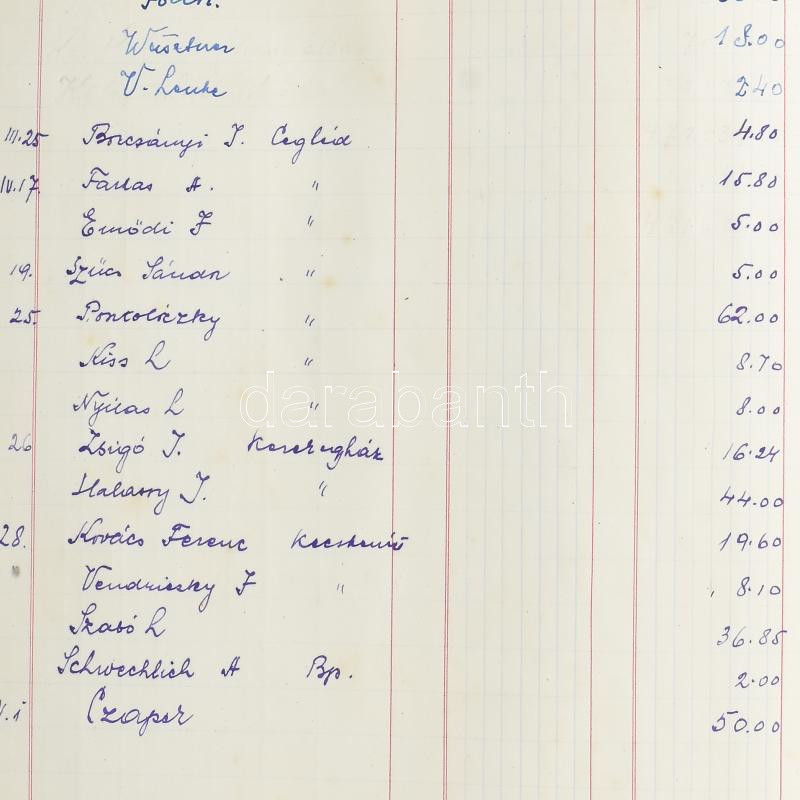 Wüsztner 18.00
V. Lenke 2.40
III.25 Borcsányi J. Cegléd 4.80
IV.17. Farkas A. " 15.80
Emődi F " 5.00
19. Szűcs Sándor " 5.00
25. Pontoliczky " 62.00
Kiss L " 8.70
Nyilas L " 8.00
26 Zsigó J. 16.24
Halassy J. " 44.00
28. Kovács Ferenc Kecskemét 19.60
Vendriczky F " 8.10
Szabó L 36.85
Schwechlich A Bp. 2.00
Czaper 50.00
darabanth